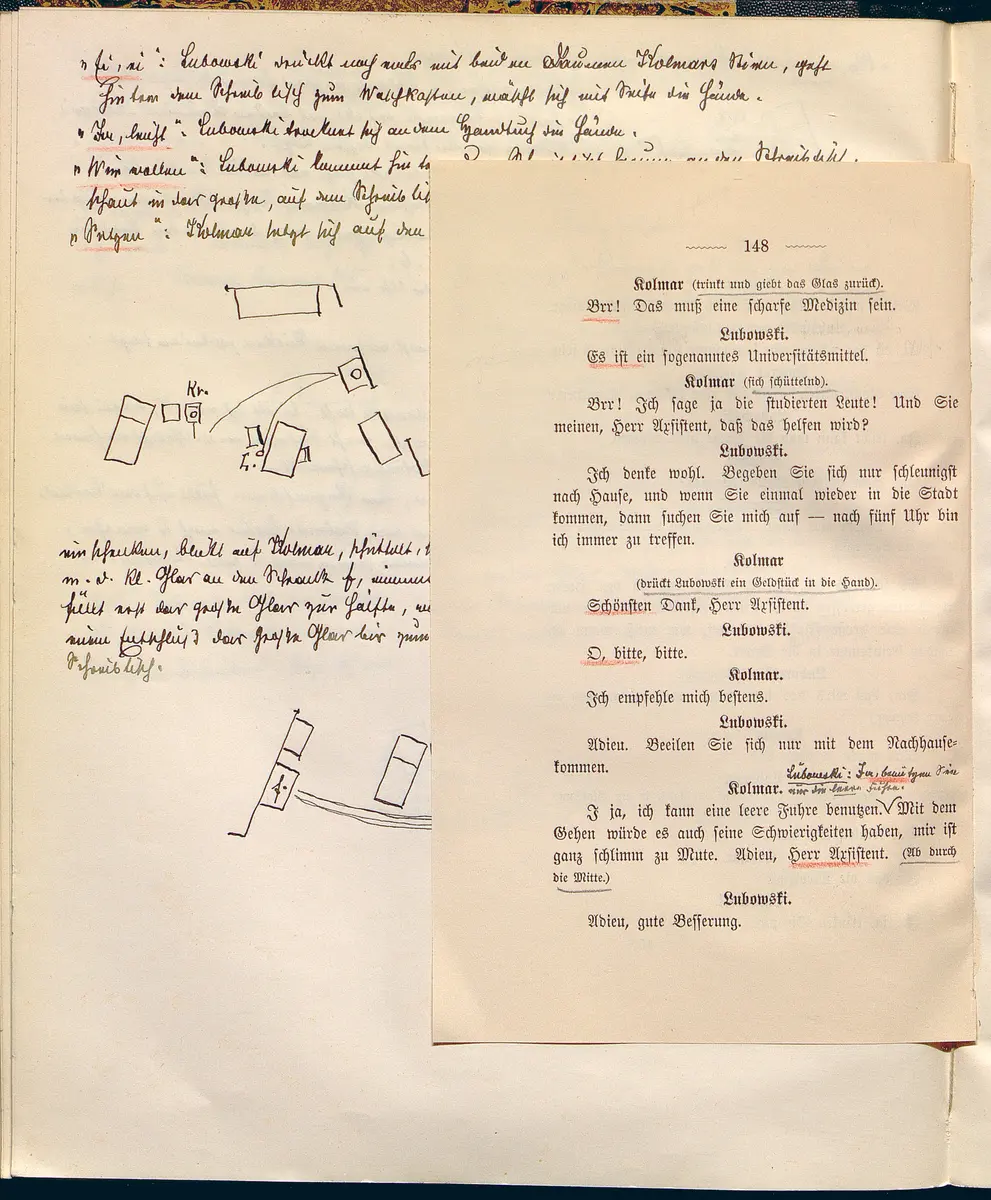 „Ei, ei“: Lubowski drückt nochmals mit beiden Daumen Kolmars Stirn, geht
hinter dem Schreibtisch zum Waschkasten, wäscht sich mit Seife die Hände.
„Ja, leicht“: Lubowski trocknet sich an dem Handtuch die Hände.
„Wir wollen“: Lubowski kommt hinter an den Schreibtisch.
schaut in das große, auf dem Schreib
„Setzen“: Kolmar setzt sich auf den
Kr.
L.
einschenken, blickt auf Kolmar, schüttelt,
m. d. kl. Glas an den Schrank f, nimmt
füllt erst das große Glas zur Hälfte,
einem Entschluß das große Glas bis zum
Schreibtisch.
148
Kolmar (trinkt und giebt das Glas zurück).
Brr! Das muß eine scharfe Medizin sein.
Lubowski.
Es ist ein sogenanntes Universitätsmittel.
Kolmar (sich schüttelnd).
Brr! Ich sage ja die studierten Leute! Und Sie
meinen, Herr Axsistent, daß das helfen wird?
Lubowski.
Ich denke wohl. Begeben Sie sich nur schleunigst
nach Hause, und wenn Sie einmal wieder in die Stadt
kommen, dann suchen Sie mich auf — nach fünf Uhr bin
ich immer zu treffen.
Kolmar
(drückt Lubowski ein Geldstück in die Hand).
Schönsten Dank, Herr Axsistent.
Lubowski.
O, bitte, bitte.
Kolmar.
Ich empfehle mich bestens.
Lubowski.
Adieu. Beeilen Sie sich nur mit dem Nachhause-
kommen.
Lubowski: Ja, benützen Sie
Kolmar. nur die leere Fuhre.
I ja, ich kann eine leere Fuhre benutzen. Mit dem
Gehen würde es auch seine Schwierigkeiten haben, mir ist
ganz schlimm zu Mute. Adieu, Herr Axsistent. (Ab durch
die Mitte.)
Lubowski.
Adieu, gute Besserung.